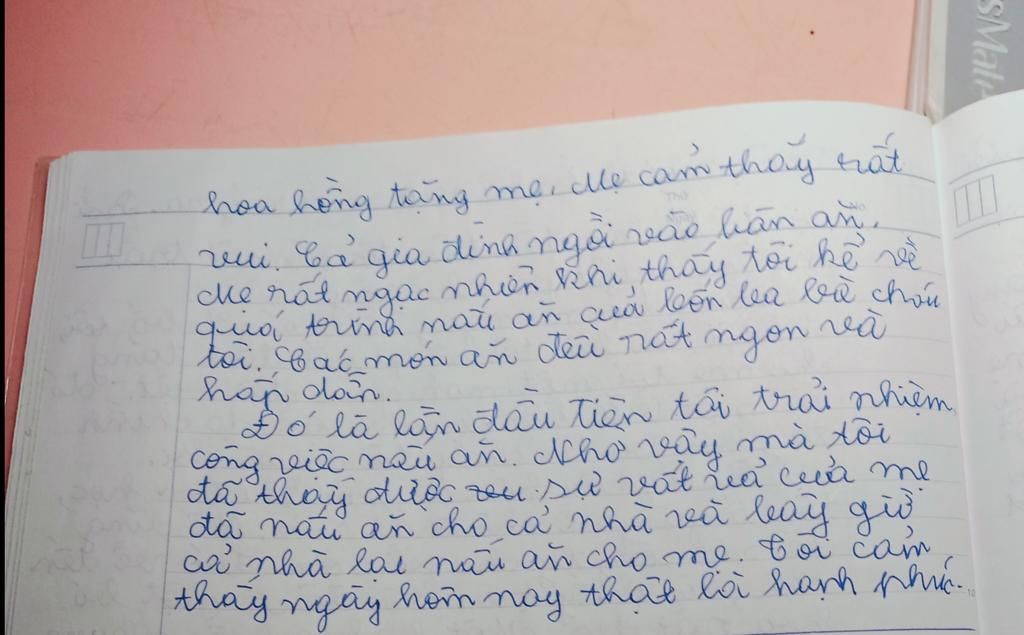 hoa hồng tặng mẹ. Mẹ cảm thấy rất
vui. Cả gia đình ngồi vào bàn ăn.
Mẹ rất ngạc nhiên khi thấy tôi kể về
quá trình nấu ăn của bốn ba bà cháu
tôi. Các món ăn đều rất ngon và
hấp dẫn.
Đó là lần đầu tiên tôi trải nhiệm
công việc nấu ăn. Nhờ vậy mà tôi
đã thấy được sự vất vả của mẹ
đã nấu ăn cho cả nhà và bây giờ
cả nhà lại nấu ăn cho mẹ. Tôi cảm
thấy ngày hôm nay thật là hạnh phúc.